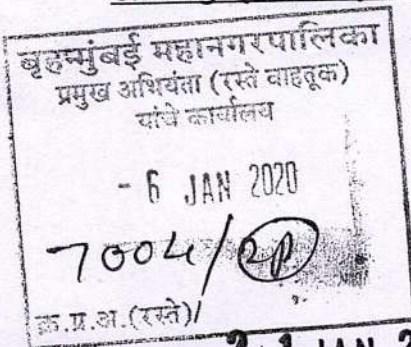 बृहन्मुंबई महानगरपालिका
प्रमुख अभियंता (रस्ते वाहतूक)
यांचे कार्यालय
- 6 JAN 2020
7004/
क्र.प्र.अ.(रस्ते)/
JAN 2